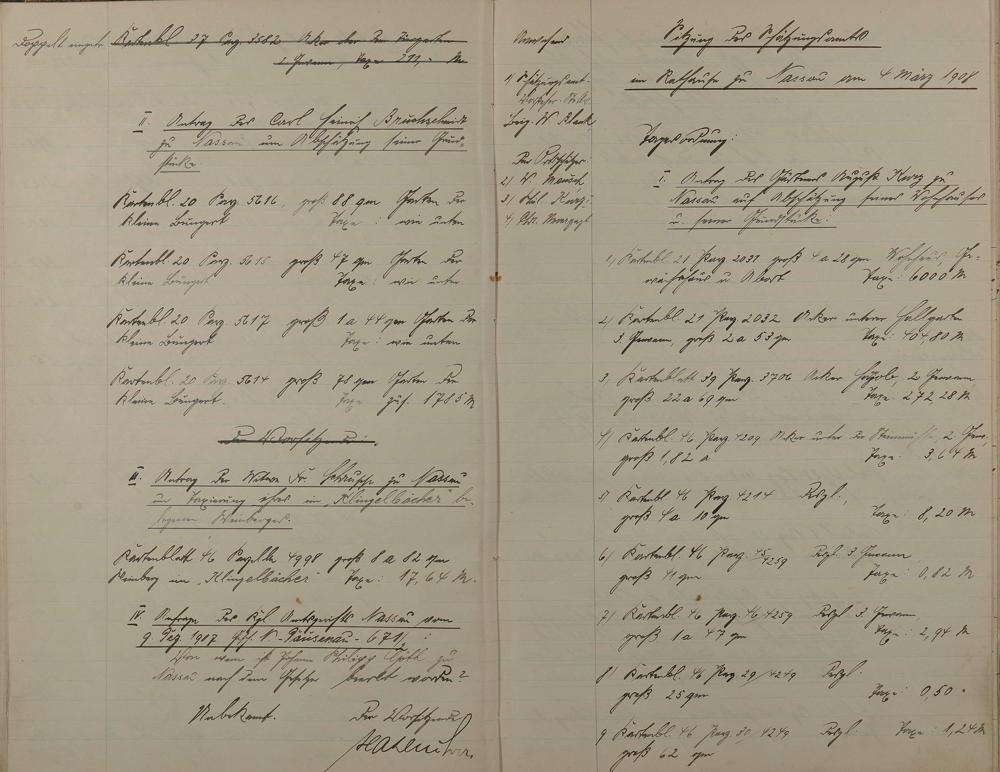 Doppelt eingetr.
Kartenbl 37 Parz. 3582 Acker
2 Gewann, Taxe 211,- M
II. Antrag des Carl Heinrich Bruchschmidt
zu Nassau um Abschätzung seiner Grund-
stücke
Kartenbl. 20 Parz. 5616, groß 88 qm Garten der
kleine Bungert Taxe: wie unten
Kartenbl. 20 Parz. 5615 groß 47 qm Garten der
kleine Bungert Taxe: wie unten
Kartenbl. 20 Parz. 5617 groß 1 a 44 qm Garten der
kleine Bungert Taxe: wie unten
Kartenbl. 20 Parz. 5614 groß 78 qm Garten der
kleine Bungert. Taxe zus. 1785 M
Der Vorsitzende:
III. Antrag der Witwe Fr. zu Nassau
um Taxierung eines im "Klingelbächer" be-
legenen Weinberges.
Kartenblatt 46 Parzelle 4998 groß 8 a 82 qm
Weinberg im "Klingelbächer" Taxe: 17,64 M.
IV. Anfrage des Kgl Amtsgerichts Nassau vom
9 Dez 1907 Gesch. N - Dausenau - 671/ :
Von wem ist Johann Philipp zu
Nassau nach dem Gesetze beerbt worden?
Unbekannt. Der Vorsitzende
Anwesend
1) Schätzungsamts-
Vorsteher
Beig. W
Die Ortsschätzer:
2) W. Meusch
3) Phil. Kurz
4) Chr.
Sitzung des Schätzungsamts
im Rathause zu Nassau am 4 März 1908
Tagesordnung:
I. Antrag des Gärtners August Herz zu
Nassau auf Abschätzung seines Wohnhauses
u. seiner Grundstücke.
1) Kartenbl. 21 Parz 2031 groß 4 a 28 qm Wohnhaus, Ge-
wächshaus u Abort Taxe: 6000 M
2) Kartenbl. 21 Parz. 2032 Acker unterer Hallgarten
3. Gewann, groß 2 a 53 qm Taxe: 404,80 M
3) Kartenblatt 39 Parz. 3706 Acker 2 Gewann
groß 22 a 69 qm Taxe: 272,28 M
4) Kartenbl. 46 Parz 4209 Acker unter der 2. Gew.
groß 1,82 a Taxe: 3,64 M
5) Kartenbl 46 Parz. 4214 Desgl.
groß 4 a 10 qm Taxe: 8,20 M
6) Kartenbl. 46 Parz. 45/4259 Desgl. 3 Gewann
groß 41 qm Taxe: 0,82 M
7) Kartenbl. 46 Parz. 46/4259 Desgl 3. Gewann
groß 1 a 47 qm Taxe: 2,94 M
8) Kartenbl. 46 Parz 29/4249 Desgl.
groß 25 qm Taxe: 0,50 "
9 Kartenbl. 46 Parz 30/4249 Desgl. Taxe: 1,24 M
groß 62 qm